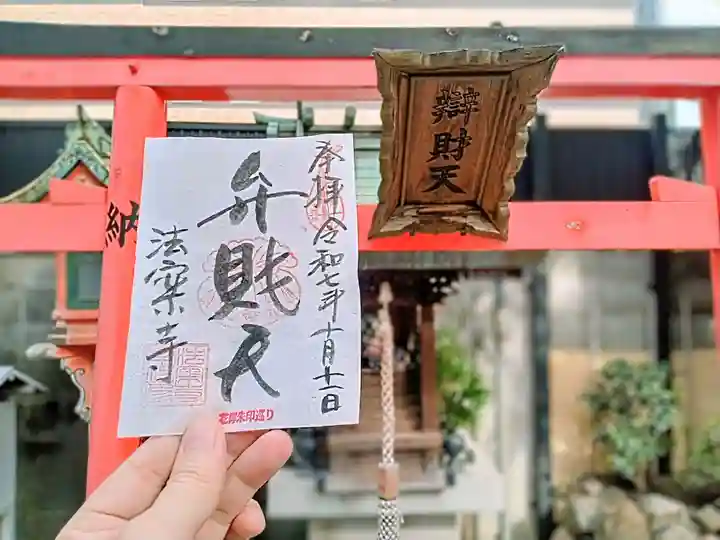 辯財天
奉拝 令和七年十月十一日
弁財天
法案寺
花房朱印巡り
納